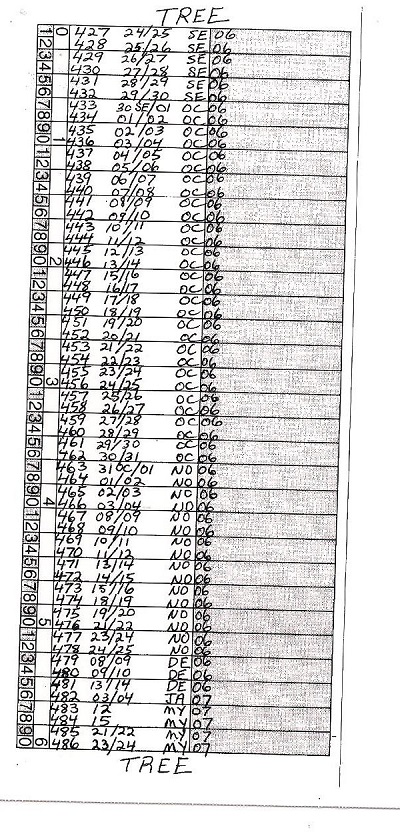 TREE
1 0 427 24/25 SE 06
2 428 25/26 SE 06
3 429 26/27 SE 06
4 430 27/28 SE 06
5 431 28/29 SE 06
6 432 29/30 SE 06
7 433 30 SE/01 OC 06
8 434 01/02 OC 06
9 435 02/03 OC 06
0 1 436 03/04 OC 06
1 437 04/05 OC 06
2 438 05/06 OC 06
3 439 06/07 OC 06
4 440 07/08 OC 06
5 441 08/09 OC 06
6 442 09/10 OC 06
7 443 10/11 OC 06
8 444 11/12 OC 06
9 445 12/13 OC 06
0 2 446 13/14 OC 06
1 447 15/16 OC 06
2 448 16/17 OC 06
3 449 17/18 OC 06
4 450 18/19 OC 06
5 451 19/20 OC 06
6 452 20/21 OC 06
7 453 21/22 OC 06
8 454 22/23 OC 06
9 455 23/24 OC 06
0 3 456 24/25 OC 06
1 457 25/26 OC 06
2 458 26/27 OC 06
3 459 27/28 OC 06
4 460 28/29 OC 06
5 461 29/30 OC 06
6 462 30/31 OC 06
7 463 31 OC/01 NO 06
8 464 01/02 NO 06
9 465 02/03 NO 06
0 4 466 03/04 NO 06
1 467 08/09 NO 06
2 468 09/10 NO 06
3 469 10/11 NO 06
4 470 11/12 NO 06
5 471 13/14 NO 06
6 472 14/15 NO 06
7 473 15/16 NO 06
8 474 18/19 NO 06
9 475 19/20 NO 06
0 5 476 21/22 NO 06
1 477 23/24 NO 06
2 478 24/25 NO 06
3 479 08/09 DE 06
4 480 09/10 DE 06
5 481 13/14 DE 06
6 482 03/04 JA 07
7 483 12 MY 07
8 484 15 MY 07
9 485 21/22 MY 07
0 6 486 23/24 MY 07
TREE